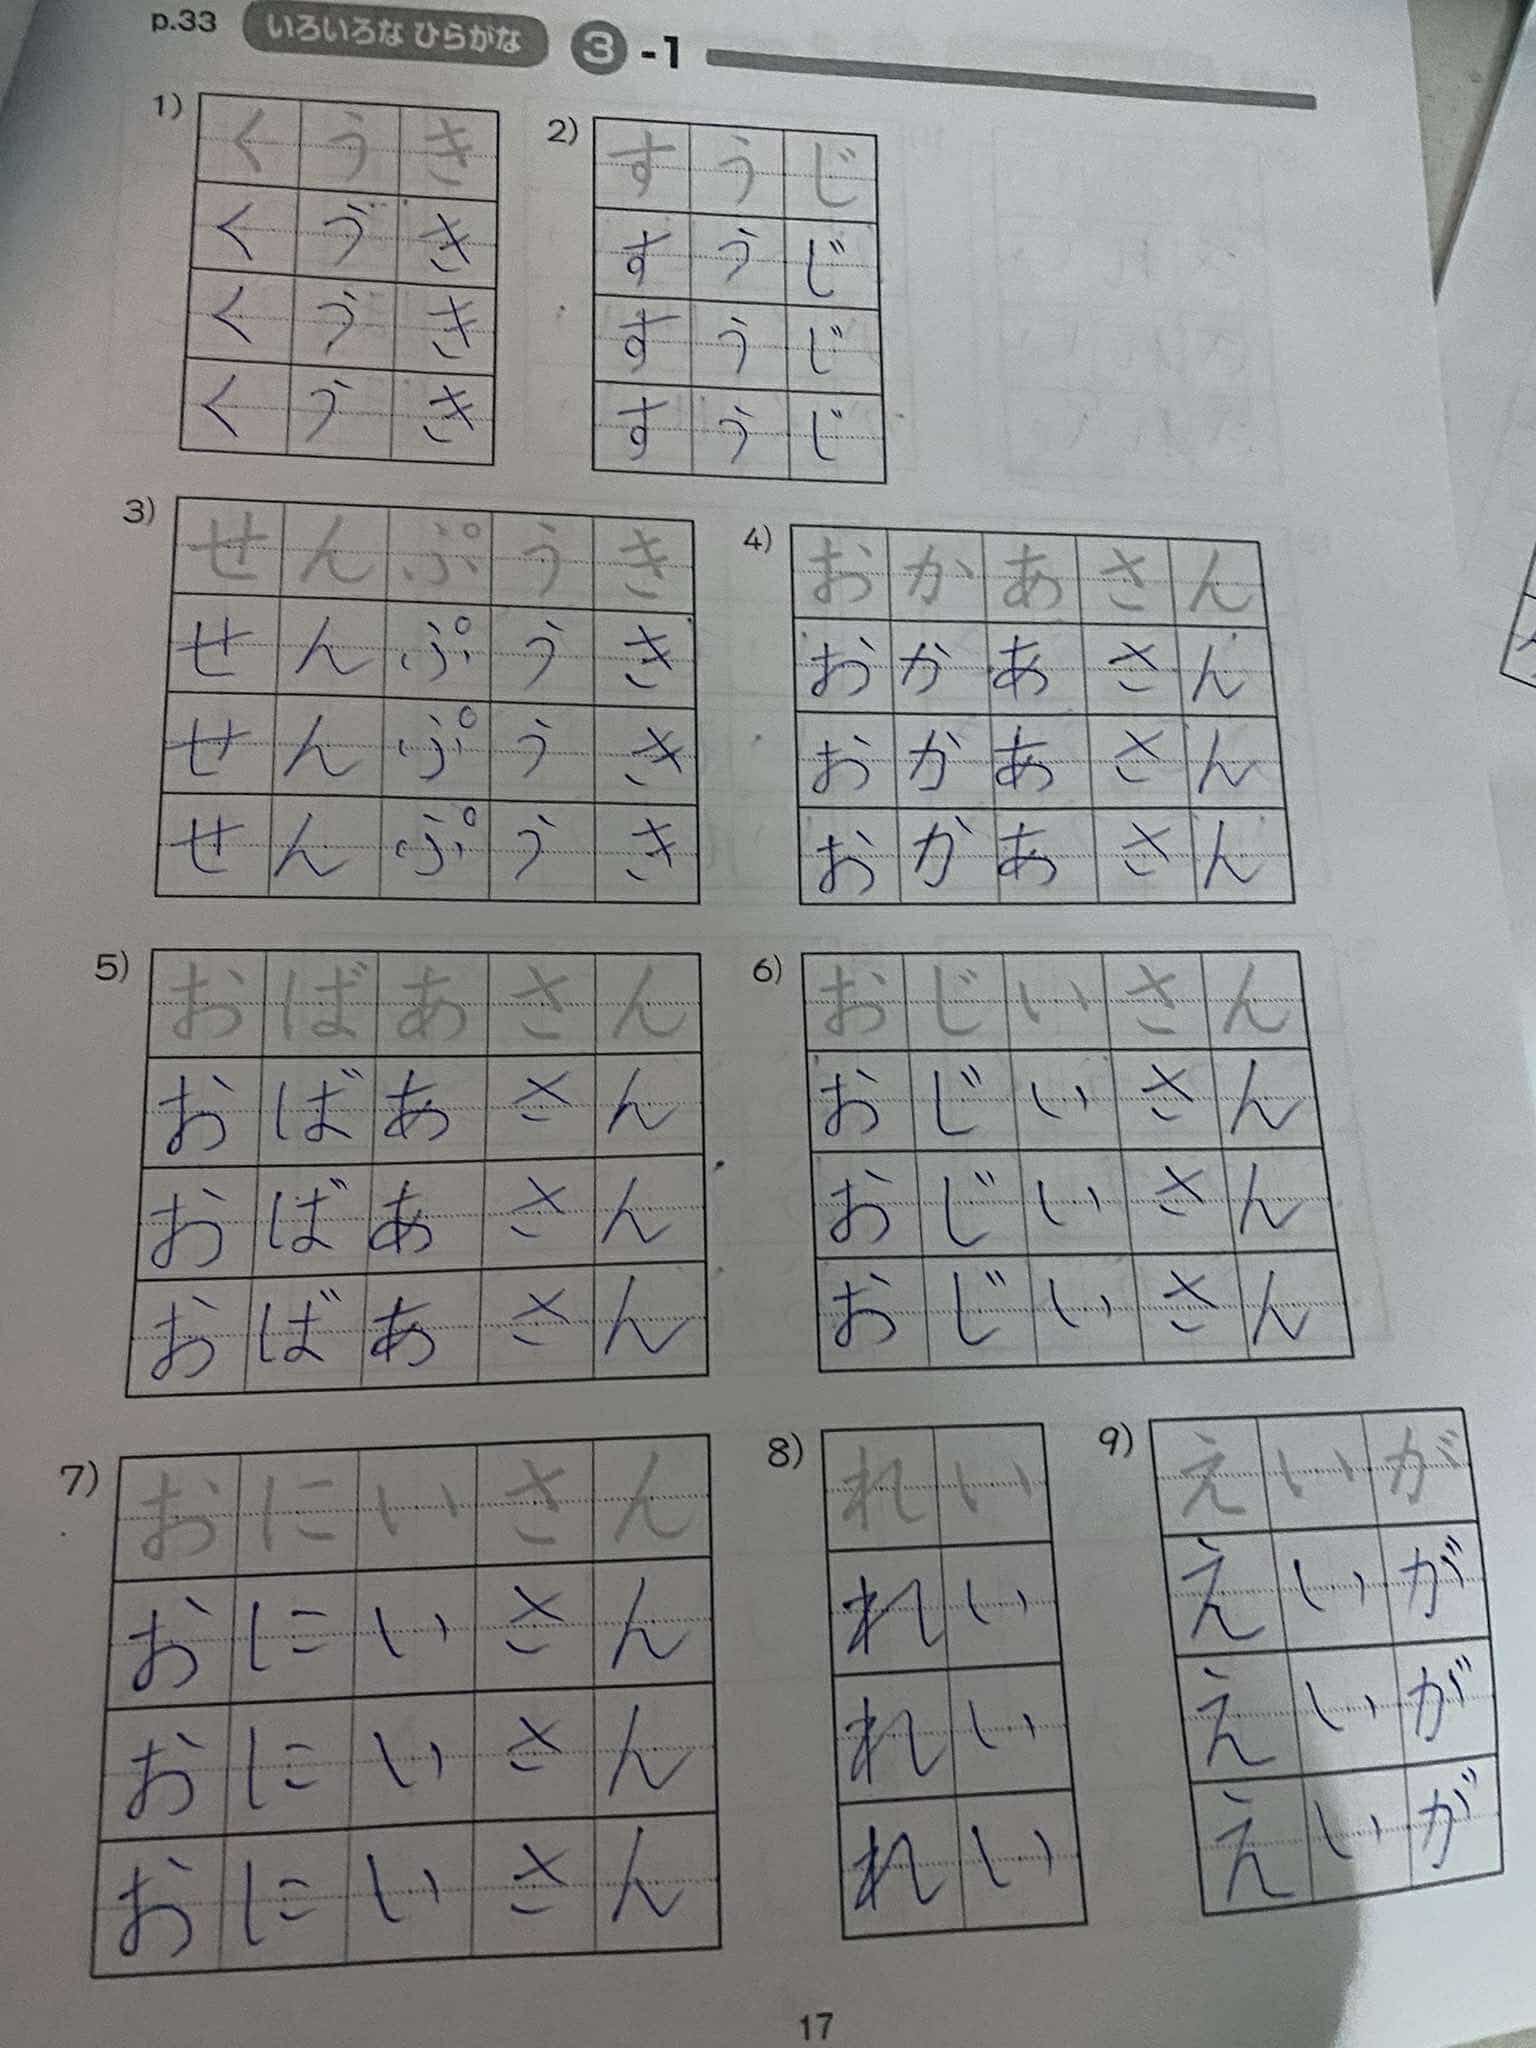 p.33 いろいろな ひらがな ③-1
1)
くうき
くうき
くうき
くうき
2)
すうじ
すうじ
すうじ
すうじ
3)
せんぷうき
せんぷうき
せんぷうき
せんぷうき
4)
おかあさん
おかあさん
おかあさん
おかあさん
5)
おばあさん
おばあさん
おばあさん
おばあさん
6)
おじいさん
おじいさん
おじいさん
おじいさん
7)
おにいさん
おにいさん
おにいさん
おにいさん
8)
れい
れい
れい
れい
9)
えいが
えいが
えいが
えいが
17